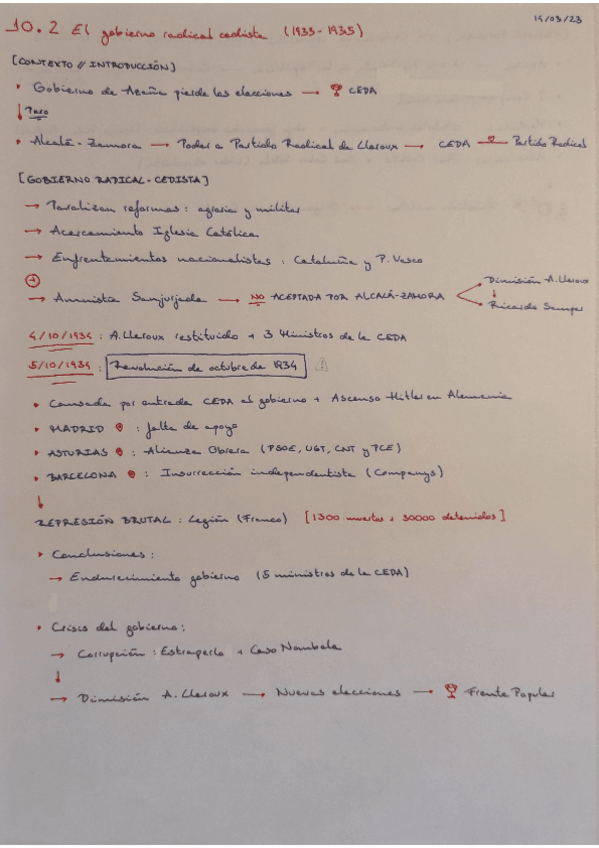 14/03/23
10.2 El gobierno radical cedista (1933-1935)
[CONTEXTO // INTRODUCCIÓN]
• Gobierno de Azaña pierde las elecciones → 🏆 CEDA
↓ Pero
• Alcalá-Zamora → Poder a Partido Radical de Lleroux → CEDA — Partido Radical
[GOBIERNO RADICAL-CEDISTA]
→ Paralizan reformas: agraria y militar
→ Acercamiento Iglesia Católica
→ Enfrentamientos nacionalistas: Cataluña y P. Vasco
→ Amnistía Sanjurjada → NO ACEPTADA POR ALCALÁ-ZAMORA
Dimisión A. Lleroux
↓
Ricardo Samper
4/10/1934: A. Lleroux restituido + 3 Ministros de la CEDA
5/10/1934: Revolución de octubre de 1934 ⚠
• Causada por entrada CEDA al gobierno + Ascenso Hitler en Alemania
• MADRID 📍: falta de apoyo
• ASTURIAS 📍: Alianza Obrera (PSOE, UGT, CNT y PCE)
• BARCELONA 📍: Insurrección independentista (Companys)
↓
REPRESIÓN BRUTAL: Legión (Franco) [1300 muertos + 30000 detenidos]
• Conclusiones:
→ Endurecimiento gobierno (5 ministros de la CEDA)
• Crisis del gobierno:
→ Corrupción: Estraperlo + Caso Nombela
↓
→ Dimisión A. Lleroux → Nuevas elecciones → 🏆 Frente Popular